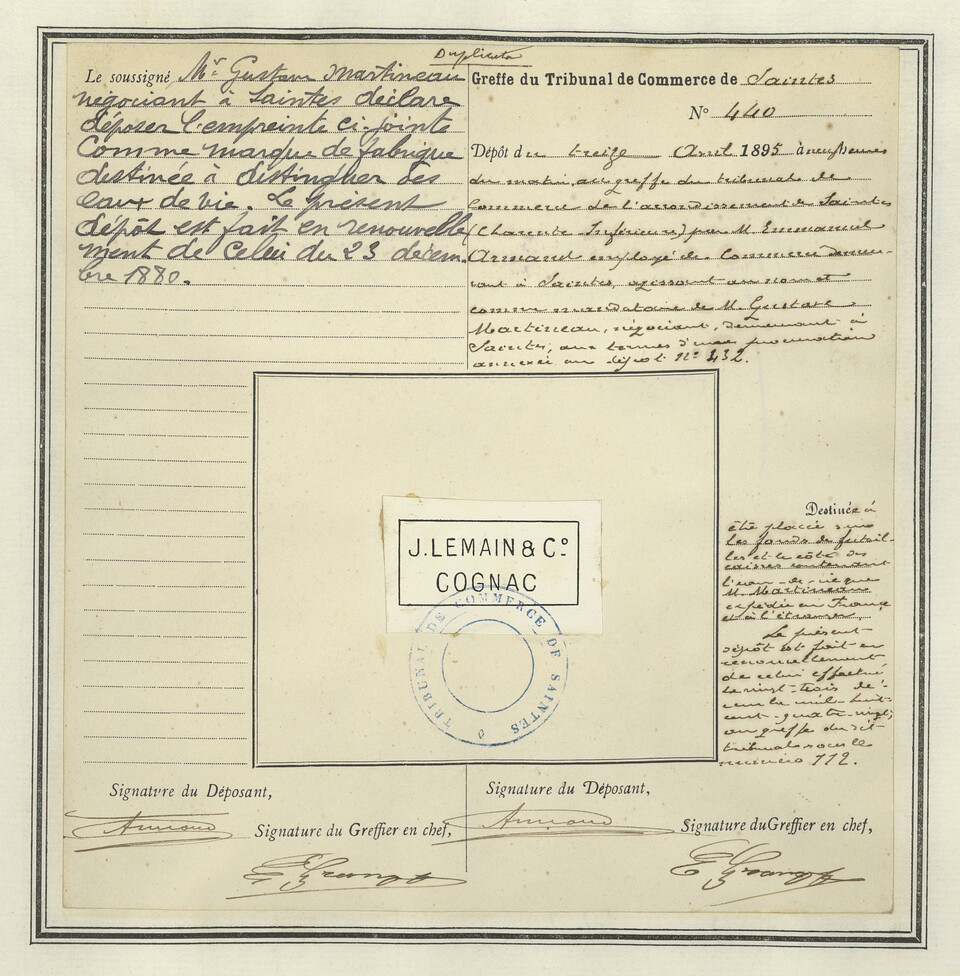 Duplicata
Le soussigné Mr. Gustave Martineau
négociant à Saintes déclare
déposer l'empreinte ci-jointe
comme marque de fabrique
destinée à distinguer des
eaux de vie. Le présent
dépôt est fait en renouvelle
ment de celui du 23 décem-
bre 1880.
Greffe du Tribunal de Commerce de Saintes
No 440
Dépôt du treize Avril 1895 à neuf heures
du matin, au greffe du tribunal de
Commerce de l'arrondissement de Saintes
(Charente Inférieure) par M. Emmanuel
Armand employé de Commerce demeu-
rant à Saintes, agissant au nom et
comme mandataire de M. Gustave
Martineau, négociant, demeurant à
Saintes, aux termes d'une procuration
annexée au dépôt no 432.
J. LEMAIN & Co.
COGNAC
TRIBUNAL DE COMMERCE DE SAINTES
Destinée à
être placée sur
les fonds de futail-
les et le côté des
caisses contenant
l'eau-de-vie que
M. Martineau
expédie en France
et à l'étranger.
Le présent
dépôt est fait en
renouvellement
de celui effectué
le vingt-trois dé-
cembre mil huit-
cent-quatre-vingt,
au greffe du dit
tribunal sous le
numéro 112.
Signature du Déposant,
Armand
Signature du Greffier en chef,
Signature du Déposant,
Armand
Signature du Greffier en chef,